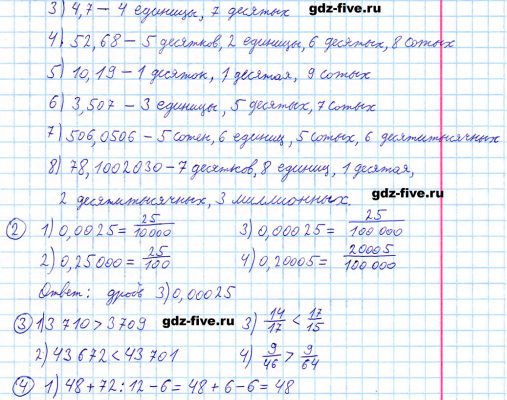 3) 4,7 – 4 единицы, 7 десятых
gdz-five.ru
4) 52,68 – 5 десятков, 2 единицы, 6 десятых, 8 сотых
5) 10,19 – 1 десяток, 1 десятая, 9 сотых
6) 3,507 – 3 единицы, 5 десятых, 7 сотых
7) 506,0506 – 5 сотен, 6 единиц, 5 сотых, 6 десятитысячных
8) 78,1002030 – 7 десятков, 8 единиц, 1 десятая,
2 десятитысячных, 3 миллионных.
gdz-five.ru
② 1) 0,0025 = 25/10000 3) 0,00025 = 25/100 000
2) 0,25000 = 25/100 4) 0,20005 = 20005/100 000
Ответ: дробь 3) 0,00025
③ 1) 3 710 > 3709 gdz-five.ru 3) 14/17 < 17/15
2) 43 672 < 43 701 4) 9/46 > 9/64
④ 1) 48 + 72 : 12 – 6 = 48 + 6 – 6 = 48